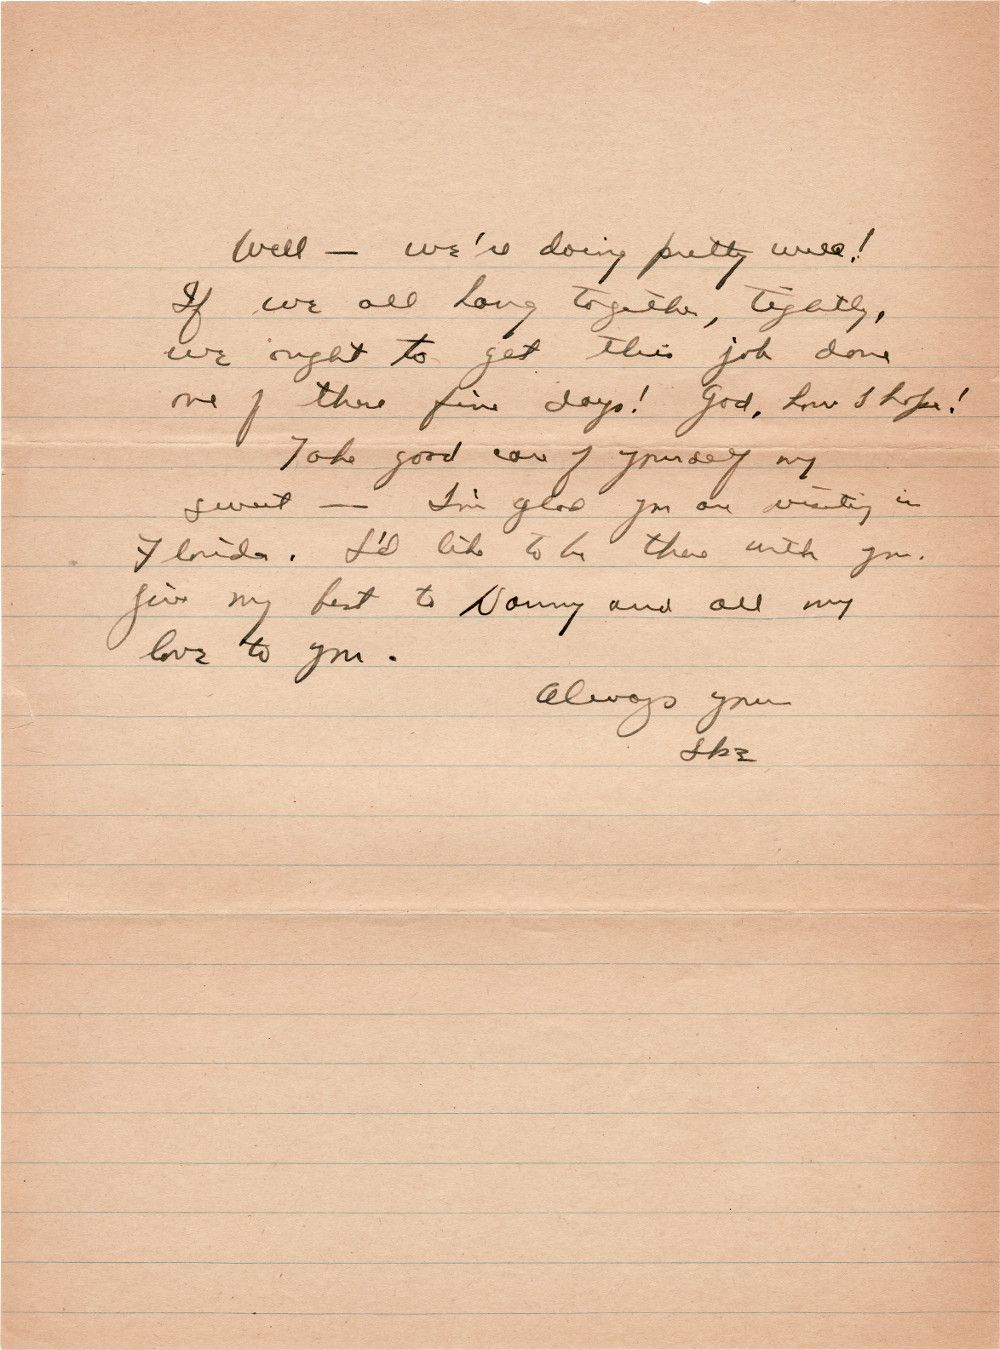 Well — we're doing pretty well!
If we all hang together, tightly,
we ought to get this job done
one of these fine days! God, how I hope!
Take good care of yourself my
sweet — I'm glad you are visiting in
Florida. I'd like to be there with you.
Give my best to Nanny and all my
love to you.
Always your
Ike